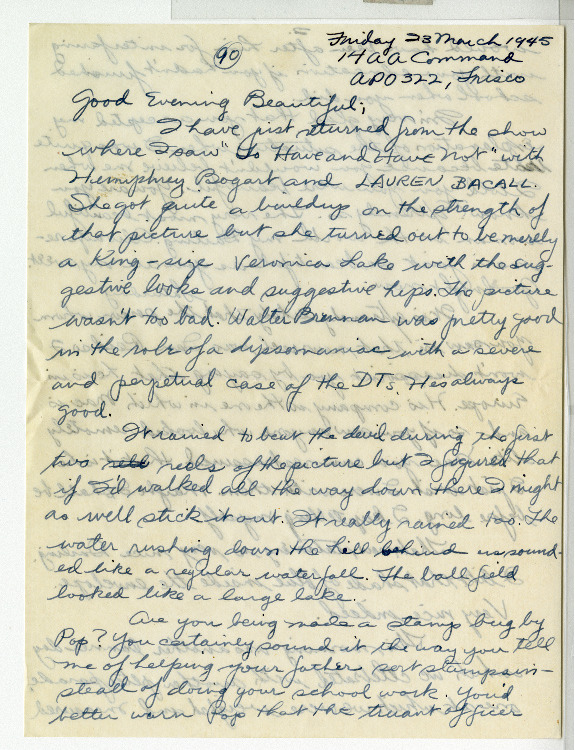 90
Friday 23 March 1945
14 AA Command
APO 322, Frisco
Good Evening Beautiful;
I have just returned from the show
where I saw "To Have and Have Not" with
Humphrey Bogart and LAUREN BACALL.
She got quite a buildup on the strength of
that picture but she turned out to be merely
a King-size Veronica Lake with the sug-
gestive looks and suggestive hips. The picture
wasn't too bad. Walter Brennan was pretty good
in the role of a dipsomaniac with a severe
and perpetual case of the DTs. He's always
good.
It rained to beat the devil during the first
two reels of the picture but I figured that
if I'd walked all the way down there I might
as well stick it out. It really rained too. The
water rushing down the hill behind us pound-
ed like a regular waterfall. The ball field
looked like a large lake.
Are you being made a stamp bug by
Pop? You certainly sound it the way you tell
me of helping your father sort stamps in-
stead of doing your school work. You'd
better warn Pop that the truant officer